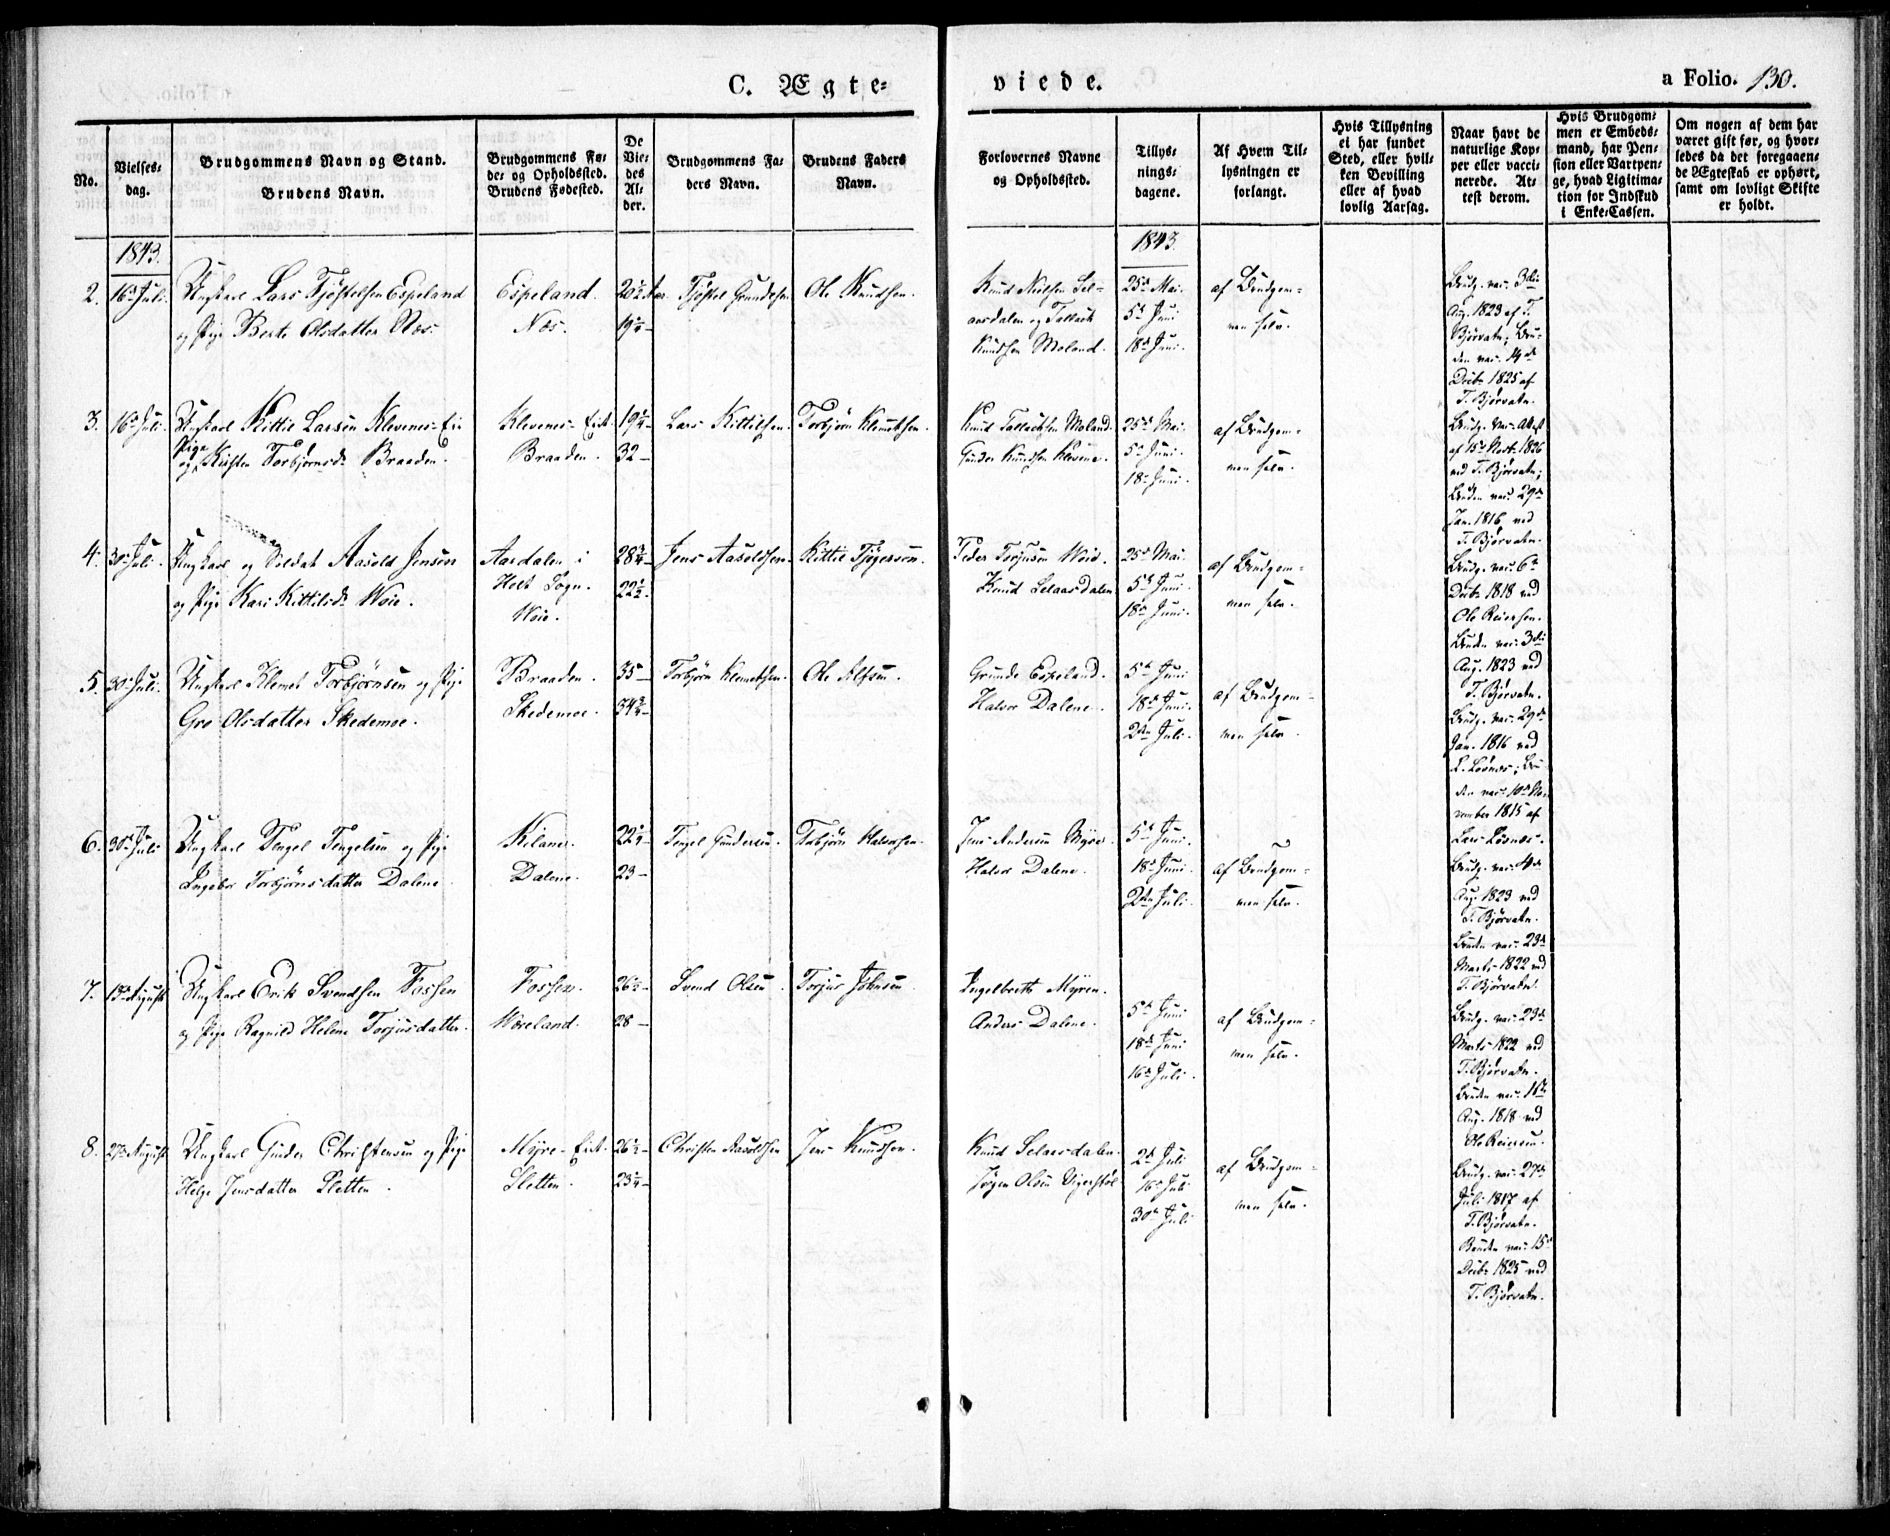 C. Ægte-
viede.
a Folio. 130.
No.
Vielses-
dag.
Brudgommens Navn og Stand.
Brudens Navn.
Brudgommens Fø-
de- og Opholdssted.
Brudens Fødested.
De
Vie-
des
Al-
der.
Brudgommens Fa-
ders Navn.
Brudens Faders
Navn.
Forlovernes Navne
og Opholdssted.
Tillys-
nings-
dagene.
Af Hvem Til-
lysningen er
forlangt.
Hvis Tillysning
ei har fundet
Sted, eller hvil-
ken Bevilling
eller af hvad
lovlig Aarsag.
Naar havt de
naturlige Kop-
per eller vacci-
nerede. At-
test derom.
Hvis Brudgom-
men er Embeds-
mand, har Pen-
sion eller Vartpen-
ge, hvad Ligitima-
tion for Indskud
i Enke-Cassen.
Om nogen af dem har
været gift før, og hvor-
ledes da det foregaaen-
de Ægteskab er ophørt,
samt om lovligt Skifte
er holdt.
1843.
1843.
2.
16de Juli.
Ungkarl Lars Tjøstelsen Espeland
og Pige Berte Olsdatter Næs.
Espeland.
Næs.
20½ Aar.
19½ –
Tjøstel Grundesen
Ole Knudsen.
Knud Nielsen Sel-
aasdalen og Tallack
Knudsen Moland.
25de Mai.
5te Juni
18de Juni.
af Brudgom-
men selv.
Brudg. vac. 3die
Aug. 1823 af T.
Bjørvatn; Bru-
den vac. 14de
Decbr 1825 af
T. Bjørvatn.
3.
16de Juli.
Ungkarl Kittil Larsen Klevenes-Eie
og Pige Kirsten Torbjørnsd. Braaden.
Klevenes-Eiet.
Braaden.
19¼ –
32 –
Lars Kittilsen.
Torbjørn Klemetsen.
Knud Tallacksen Moland.
Gunder Knudsen Klevene.
25de Mai.
5te Juni.
18de Juni.
af Brudgom-
men selv.
Brudg. vac. Attest
af 15de Novbr. 1826
ved T. Bjørvatn;
Bruden vac. 29de
Jan. 1816 ved
T. Bjørvatn.
4.
30te Juli.
Ungkarl og Soldat Aasold Jensen
og Pige Kari Kittilsd. Woie.
Aardalen i
Holt Sogn.
Woie.
28¾ –
22½ –
Jens Aasoldsen.
Kittil Tjøgersen.
Peder Terjesen Woie.
Knud Selaasdalen
25de Mai.
5te Juni.
18de Juni.
af Brudgom-
men selv.
Brudg. vac. 6te
Decbr 1818 ved
Ole Reiersen.
Bruden vac. 3die
Aug. 1823 ved
T. Bjørvatn.
5.
30te Juli.
Ungkarl Klemet Torbjørnsen og Pige
Gro Olsdatter Skedemoe.
Braaden.
Skedemoe.
35 –
34¾ –
Torbjørn Klemetsen.
Ole Alfsen.
Grunde Espeland.
Halvor Dalene.
5te Juni
18de Juni.
2den Juli.
af Brudgom-
men selv.
Brudg. vac. 29de
Jan. 1816 ved
L. Løsnæs; Bru-
den vac. 10de No-
vember 1815 af
Lars Løsnæs.
6.
30te Juli
Ungkarl Tengel Tengelsen og Pige
Ingebor Torbjørnsdatter Dalene.
Kilaner.
Dalene.
22¼ –
23 –
Tengel Gundersen.
Torbjørn Halvorsen.
Jens Andersen Myrer.
Halvor Dalene.
5te Juni.
18de Juni.
2den Juli.
af Brudgom-
men selv.
Brudg. vac. 4de
Aug. 1823 ved
T. Bjørvatn.
Bruden vac. 23de
Marts 1822 ved
T. Bjørvatn.
7.
13de August
Ungkarl Erik Svendsen Fossen
og Pige Ragnild Helene Torjusdatter.
Fossen.
Woreland.
26½ –
28 –
Svend Olsen.
Torjus Johnsen.
Ingelbreth Myren.
Anders Dalene.
5te Juni
18de Juni
16de Juli.
af Brudgom-
men selv.
Brudg. vac. 23de
Marts 1822 ved
T. Bjørvatn.
Bruden vac. 11te
Aug. 1818 ved
Ole Reiersen.
8.
27de August
Ungkarl Gunder Christensen og Pige
Helge Jensdatter Sletten.
Myre-Eiet.
Sletten.
26½ –
23¼ –
Christen Aasoldsen
Jens Knudsen.
Knud Selaasdalen.
Jørgen Olsen Ugerstøl
2den Juli
16de Juli
30te Juli
af Brudgom-
men selv.
Brudg. vac. 27de
Juli 1817 af
T. Bjørvatn.
Bruden vac. 15de
Decbr 1825 ved
T. Bjørvatn.